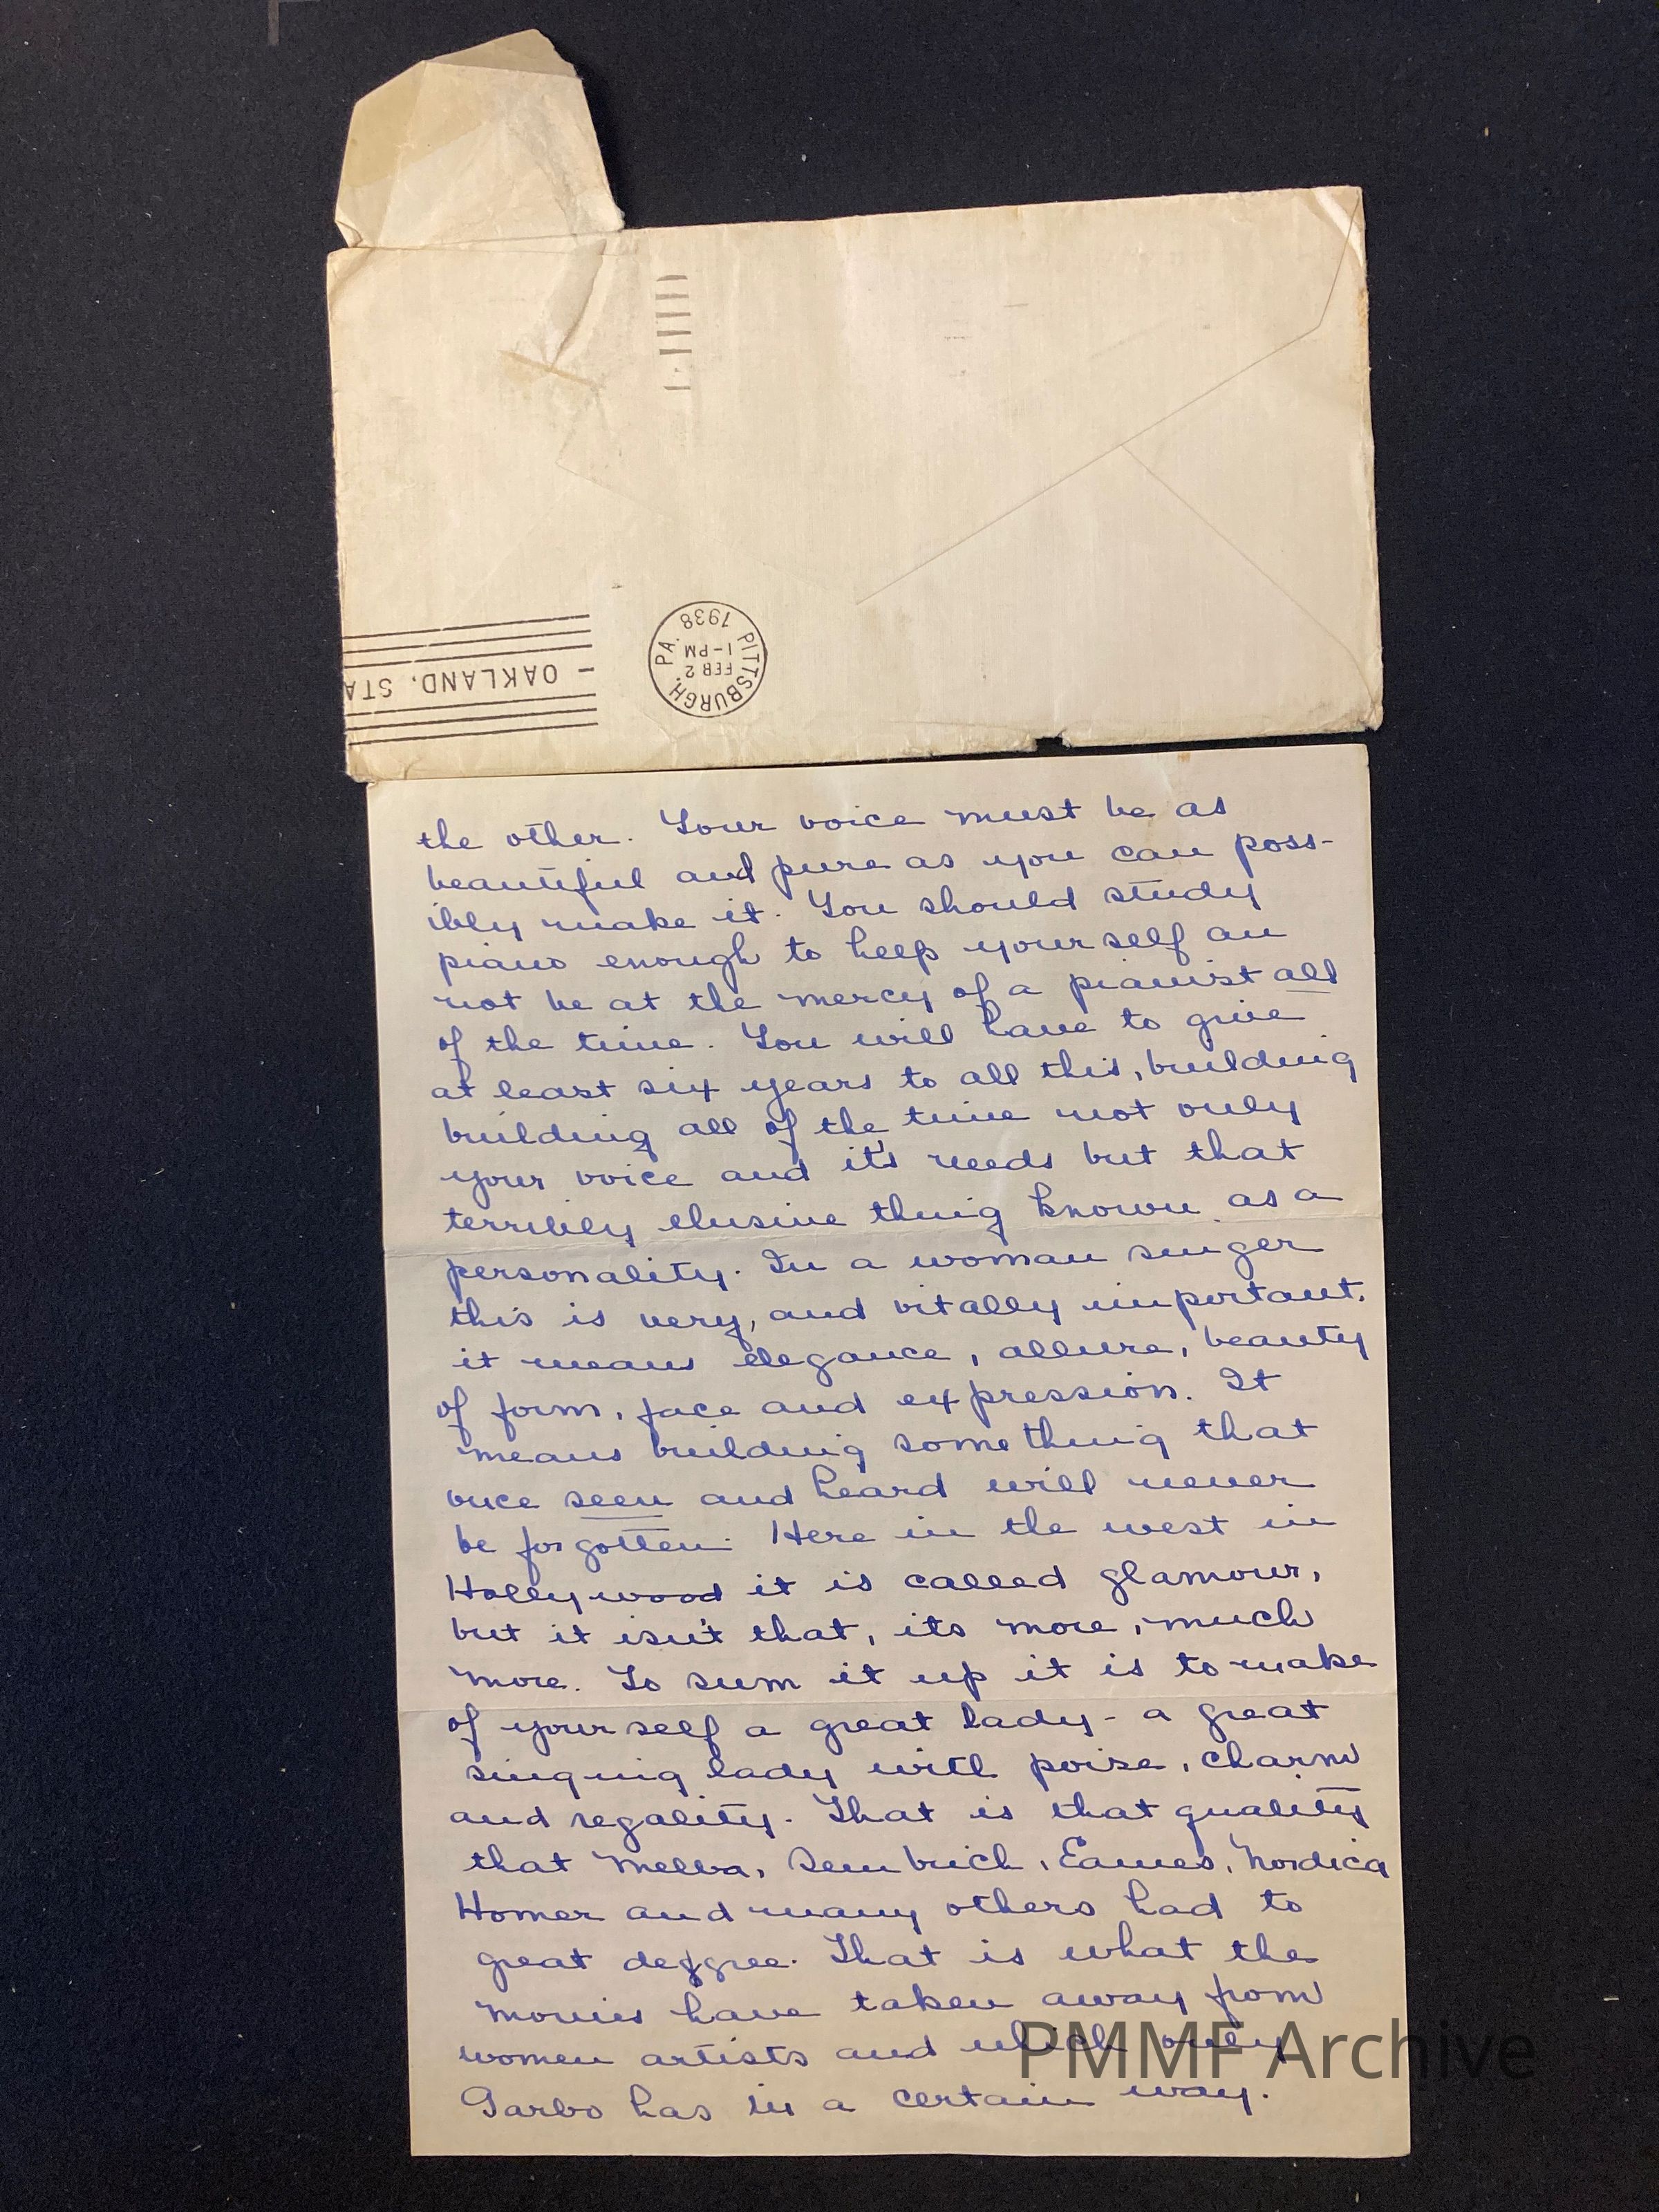 PITTSBURGH, PA.
FEB 2
1-PM
1938
- OAKLAND, STA
the other. Your voice must be as
beautiful and pure as you can poss-
ibly make it. You should study
piano enough to help yourself an
not be at the mercy of a pianist all
of the time. You will have to give
at least six years to all this, building
building all of the time not only
your voice and it's needs but that
terribly elusive thing known as a
personality. In a woman singer
this is very, and vitally important.
it means elegance, allure, beauty
of form, face and expression. It
means building something that
once seen and heard will never
be forgotten. Here in the west in
Hollywood it is called glamour,
but it isn't that, its more, much
more. To sum it up it is to make
of yourself a great lady - a great
singing lady with poise, charm
and regality. That is that quality
that Melba, Sembrich, Eames, Nordica
Homer and many others had to
great degree. That is what the
movies have taken away from
women artists and which only
Garbo has in a certain way.
PMMF Archive